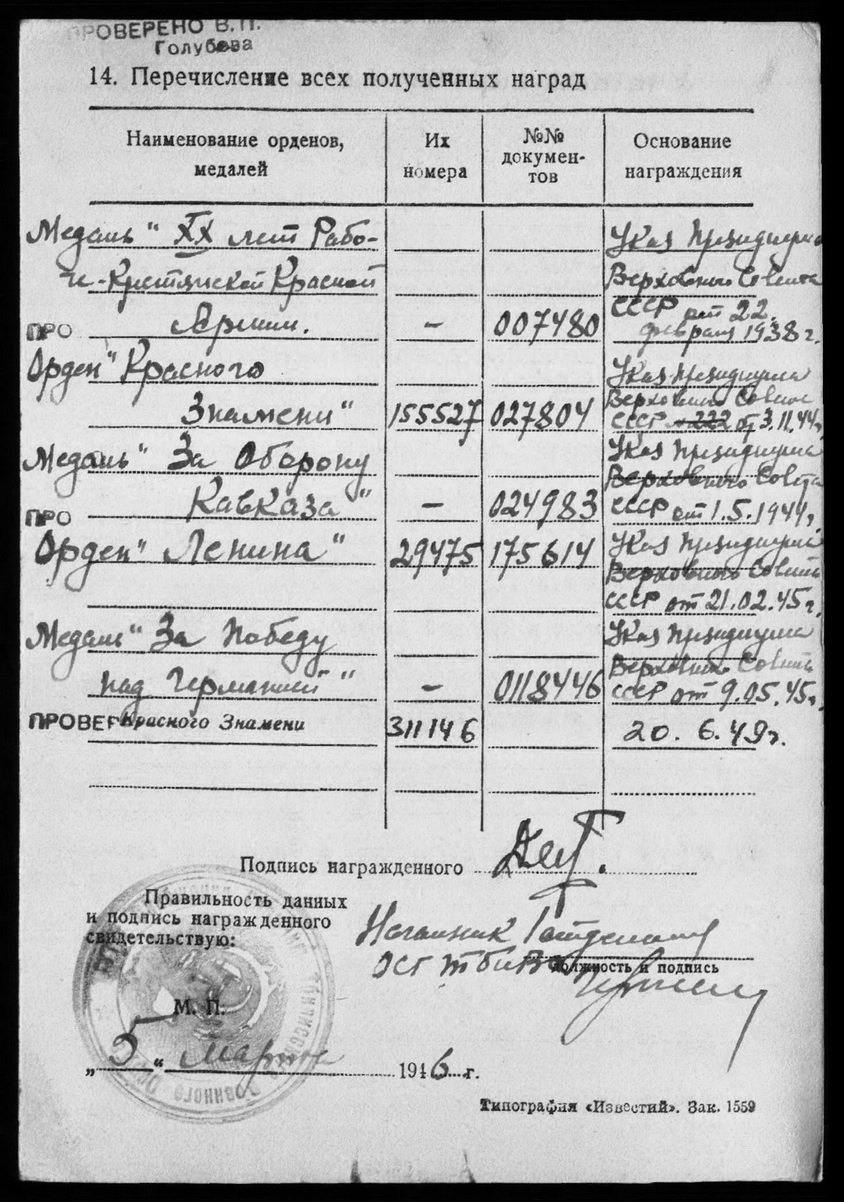 ПРОВЕРЕНО В.П.
Голубева
14. Перечисление всех полученных наград
Наименование орденов, медалей
Их номера
№№ документов
Основание награждения
Медаль "XX лет Рабо-
Указ Президиума
че-Крестьянской Красной
Верховного Совета
ПРО Армии. – 007480
СССР от 22.
февраля 1938 г.
Орден "Красного
Указ Президиума
Верховного Совета
Знамени" 155527 027804
СССР от 3.11.44г.
Медаль "За Оборону
Указ Президиума
Верховного Совета
ПРО Кавказа" – 024983
СССР от 1.5.1944г.
Орден "Ленина" 29475 175614
Указ Президиума
Верховного Совета
СССР от 21.02.45г.
Медаль "За Победу
Указ Президиума
Верховного Совета
над Германией" – 0118446
СССР от 9.05.45г.
ПРОВЕР Красного Знамени 311146 20. 6. 49г.
Подпись награжденного
Правильность данных
и подпись награжденного
свидетельствую:
Начальник
Должность и подпись
М. П.
„5“ Марта 1946 г.
Типография «Известий». Зак. 1559